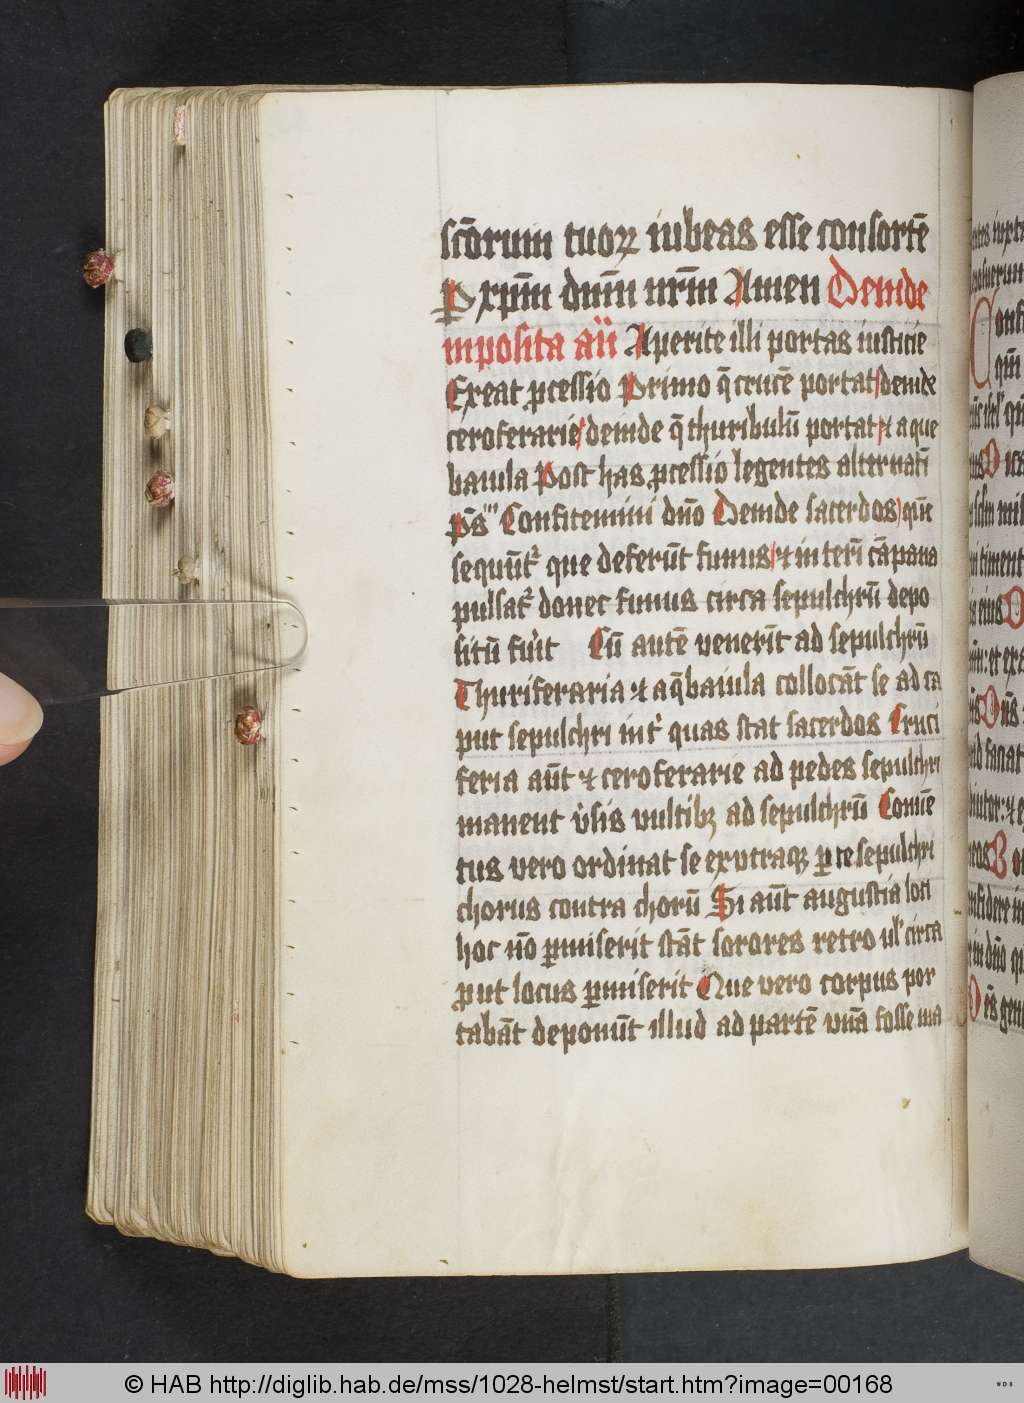 sc̄orum tuoꝝ iubeas esse consortē
ꝑ xp̄m dn̄m nr̄m Amen Deinde
inposita añ Aperite illi portas iusticie
Exeat ꝓcessio Primo q̄ crucē portat deinde
ceroferarie deinde q̄ thuribulū portat ⁊ aque
baiula Post has ꝓcessio legentes alternati͞
ps̄ Confitemini dn̄o Deinde sacerdos qm̄
sequūt᷑ que deferūt funus ⁊ interī cāpana
pulsat᷑ donec funus circa sepulchrū depo
situ͞ fūit Cū autē venerīt ad sepulchrū
Thuriferaria ⁊ aq̄baiula collocāt se ad ca
put sepulchri int᷑ quas stat sacerdos Cruci
feria aūt ⁊ ceroferarie ad pedes sepulchri
manent v̓sis vultibꝫ ad sepulchrū Conue͞
tus vero ordinat se ex vtraqꝫ ꝑte sepulchri
chorus contra chorū Si aūt angustia loci
hoc nō ꝑmiserit stāt sorores retro ul̓ circa
ꝓut locus ꝑmiserit Que vero corpus por
tabāt deponūt illud ad partē vnā fosse ma
© HAB http://diglib.hab.de/mss/1028-helmst/start.htm?image=00168